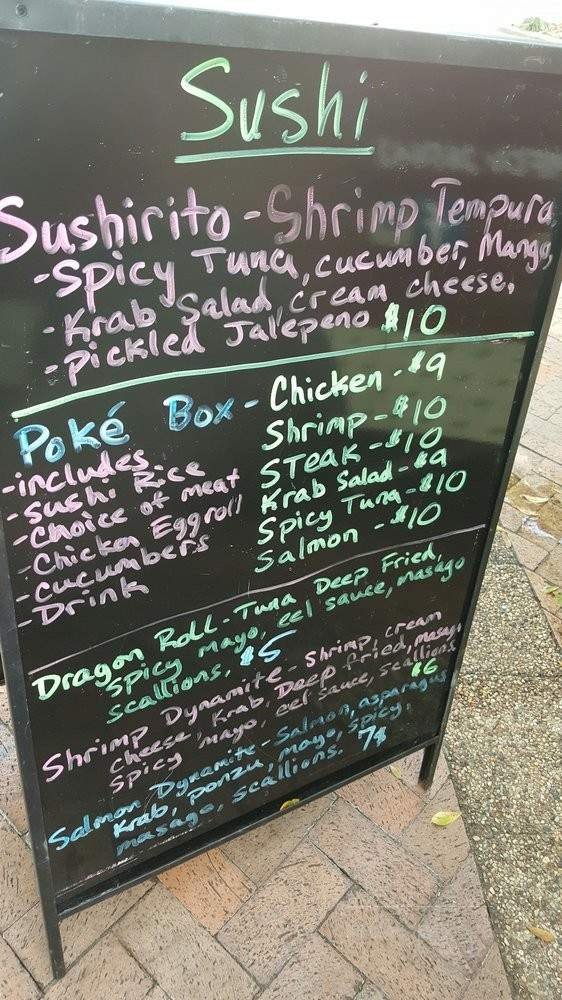 Sushi
Sushirito - Shrimp Tempura,
- Spicy Tuna, cucumber, Mango,
- Krab Salad, cream cheese,
- pickled Jalepeno $10
Poké Box -
Chicken - $9
Shrimp - $10
STeak - $10
Krab Salad - $9
Spicy Tuna - $10
Salmon - $10
- includes
- sushi Rice
- choice of meat
- Chicken Eggroll
- cucumbers
- Drink
Dragon Roll - Tuna Deep Fried,
spicy mayo, eel sauce, masago
scallions. $5
Shrimp Dynamite - Shrimp, cream
cheese, Krab, Deep fried, masago
spicy mayo, eel sauce, scallions
$6
Salmon Dynamite - Salmon, asparagus
Krab, ponzu, mayo, spicy,
masago, scallions. 7$